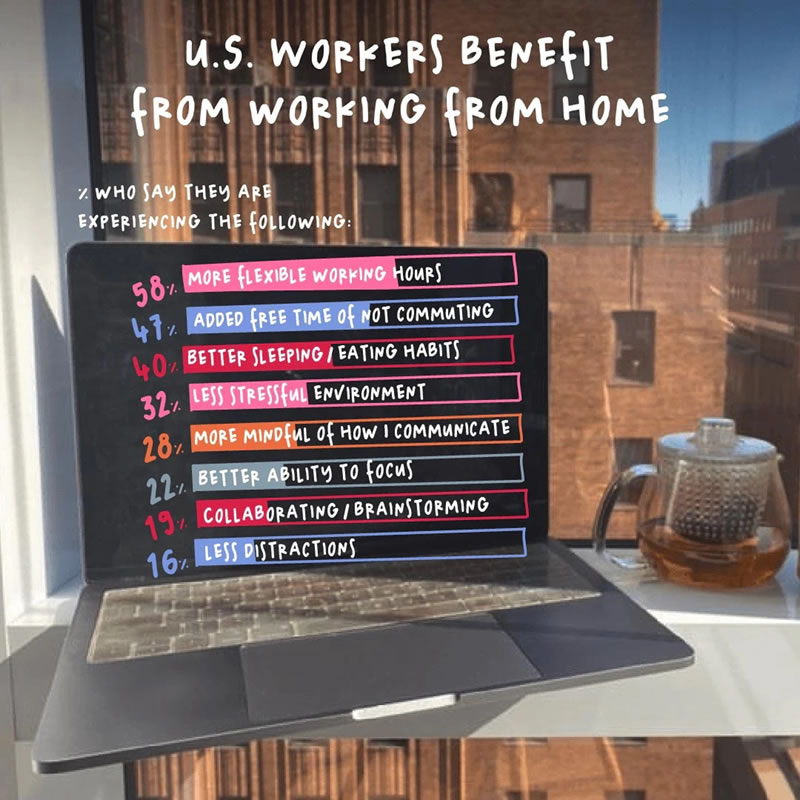 U.S. WORKERS BENEFIT
FROM WORKING FROM HOME
% WHO SAY THEY ARE
EXPERIENCING THE FOLLOWING:
58% MORE FLEXIBLE WORKING HOURS
47% ADDED FREE TIME OF NOT COMMUTING
40% BETTER SLEEPING / EATING HABITS
32% LESS STRESSFUL ENVIRONMENT
28% MORE MINDFUL OF HOW I COMMUNICATE
22% BETTER ABILITY TO FOCUS
19% COLLABORATING / BRAINSTORMING
16% LESS DISTRACTIONS